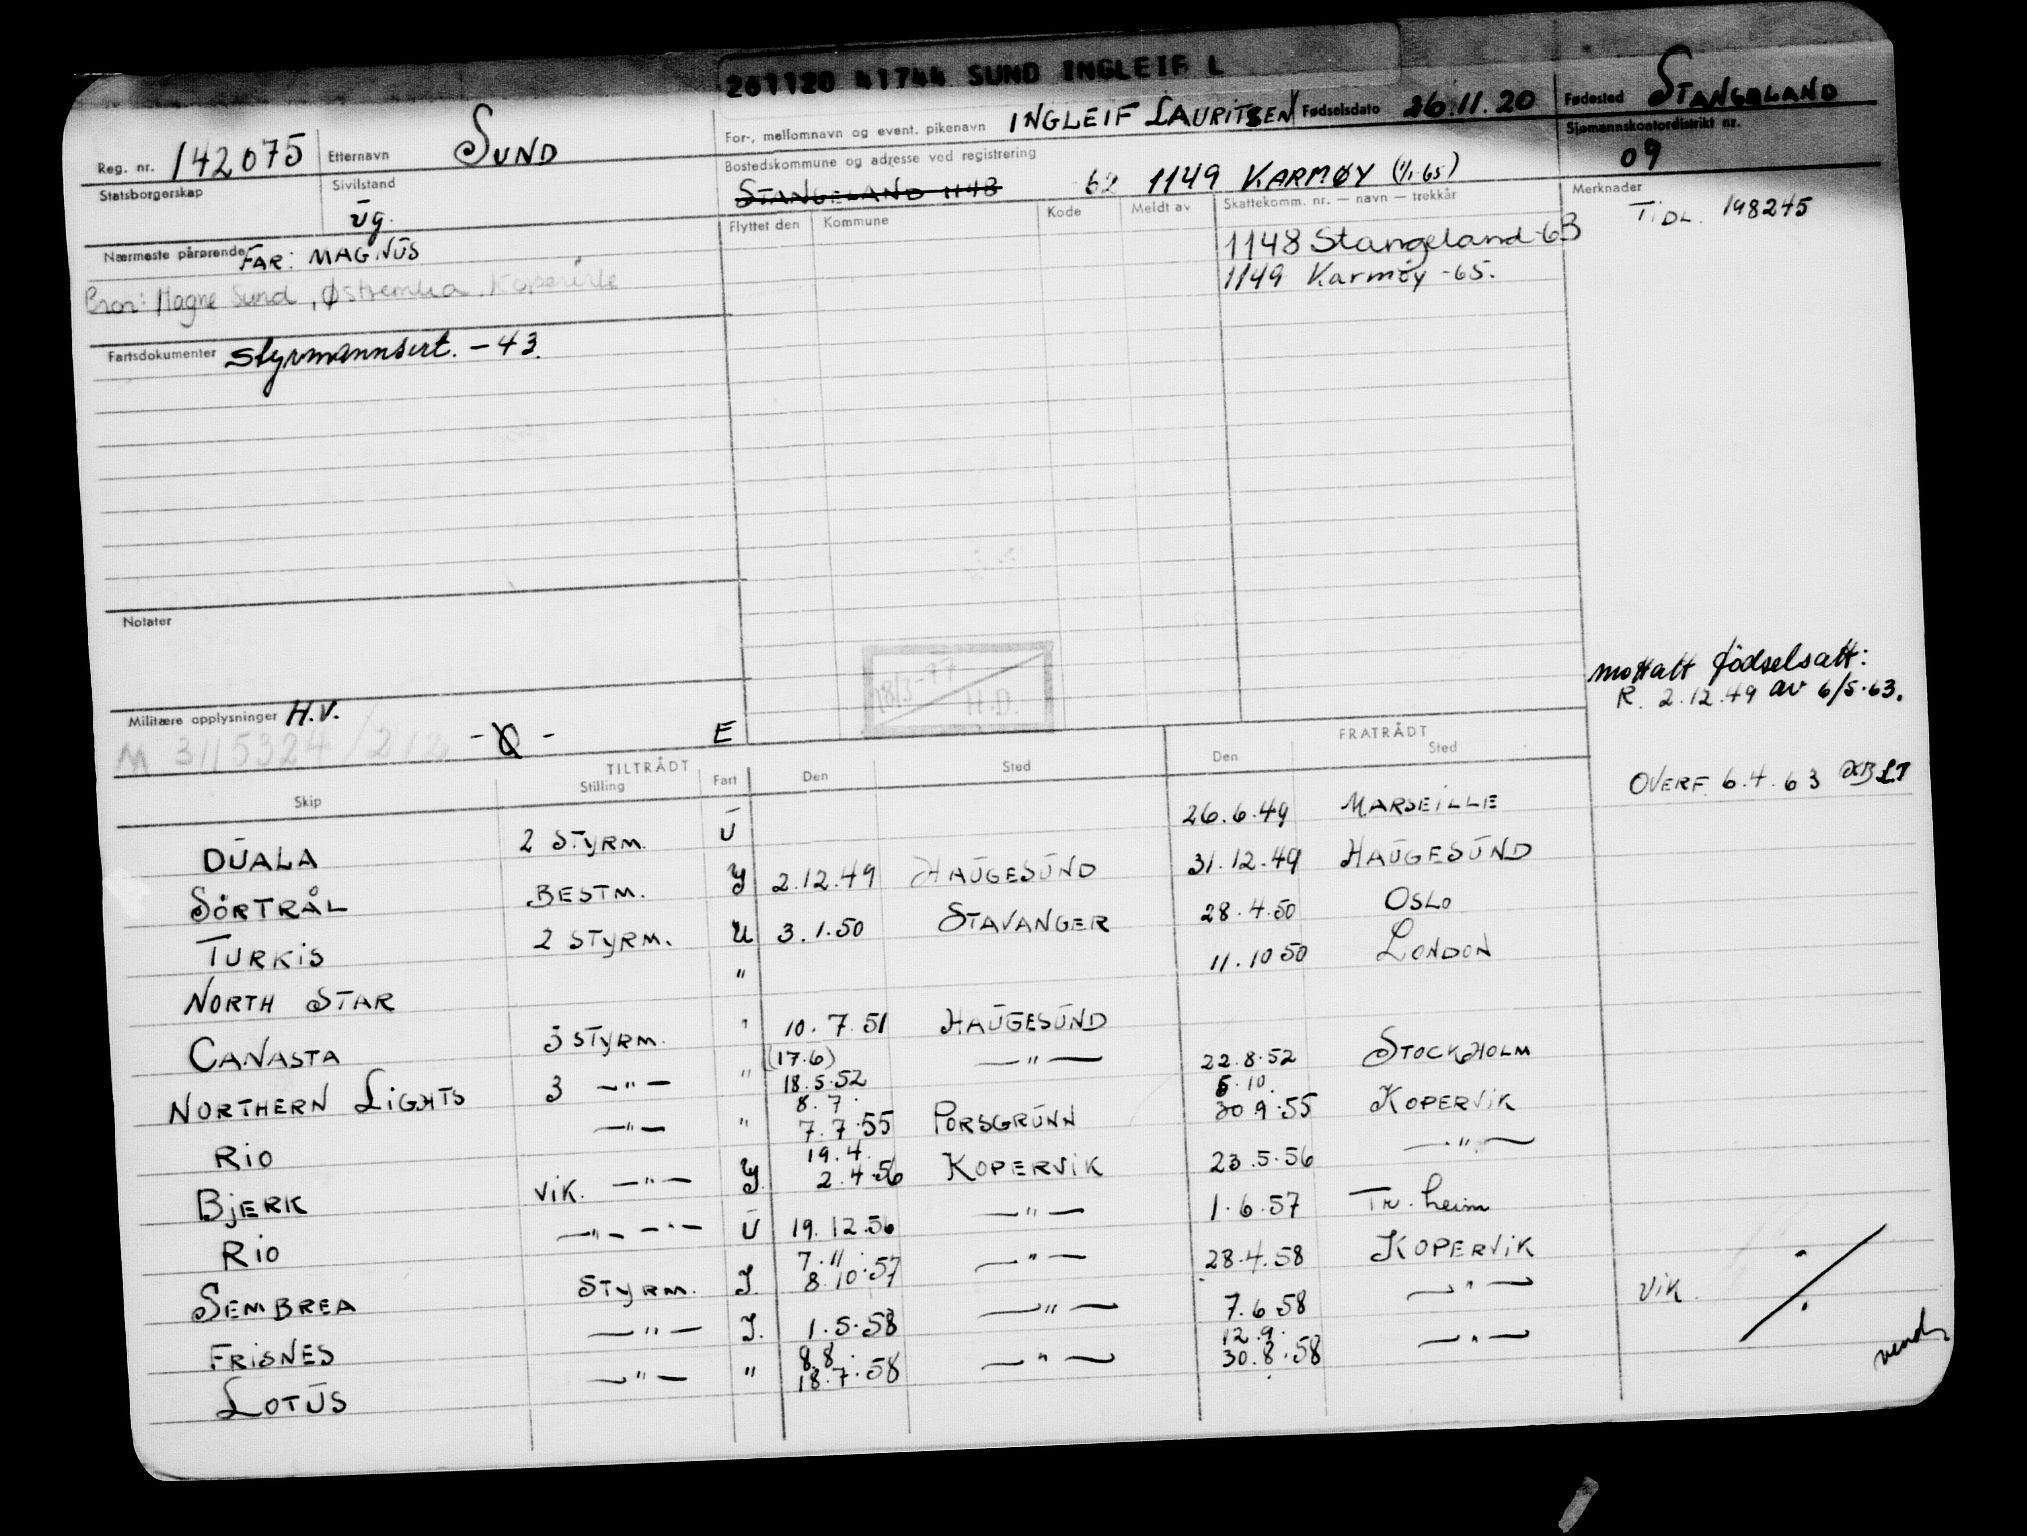 261120 41744 SUND INGLEIF L
Reg. nr. 142075 Etternavn SUND For-, mellomnavn og event. pikenavn INGLEIF LAURITSEN Fødselsdato 26.11.20 Fødested STANGELAND
Statsborgerskap Sivilstand ug. Bostedskommune og adresse ved registrering STANGELAND 1148 62 1149 KARMØY (1/1 65) Sjømannskontordistrikt nr. 09
Nærmeste pårørende FAR: MAGNUS Flyttet den Kommune Kode Meldt av Skattekomm. nr. — navn — trekkår Merknader TIDL. 198245
1148 Stangeland -63
Bror: Magne Sund, Kopervik 1149 Karmøy -65.
Fartsdokumenter styrmannsert. - 43.
Notater
18/3-77 H.D.
mottatt fødselsatt:
R. 2.12.49 av 6/5.63.
Militære opplysninger H.V. E
M 3115324/212
TILTRÅDT FRATRÅDT
Skip Stilling Fart Den Sted Den Sted
OVERF. 6.4.63
DUALA 2 STYRM. U 26.6.49 MARSEILLE
SÖRTRÅL BESTM. Y 2.12.49 HAUGESUND 31.12.49 HAUGESUND
TURKIS 2 STYRM. U 3.1.50 STAVANGER 28.4.50 OSLO
NORTH STAR " 11.10 50 LONDON
CANASTA 3 STYRM. " 10.7.51 HAUGESUND
NORTHERN LIGHTS 3 —"— " (17.6) 18.5.52 —"— 22.8.52 STOCKHOLM
RIO —"— " 8.7. 7.7.55 PORSGRUNN 5.10. 30 9.55 KOPERVIK
BJERK VIK. —"— Y. 19.4. 2.4.56 KOPERVIK 23.5.56 —"—
RIO —"— —"— U 19.12.56 —"— 1.6.57 Tr.heim
SEMBREA STYRM. I. 7.11. 8.10.57 —"— 28.4.58 KOPERVIK
FRISNES —"— I. 1.5.58 —"— 7.6.58 —"— VIK.
LOTUS —"— " 8.8. 18.7.58 —"— 12.9. 30.8.58 —"—
vend